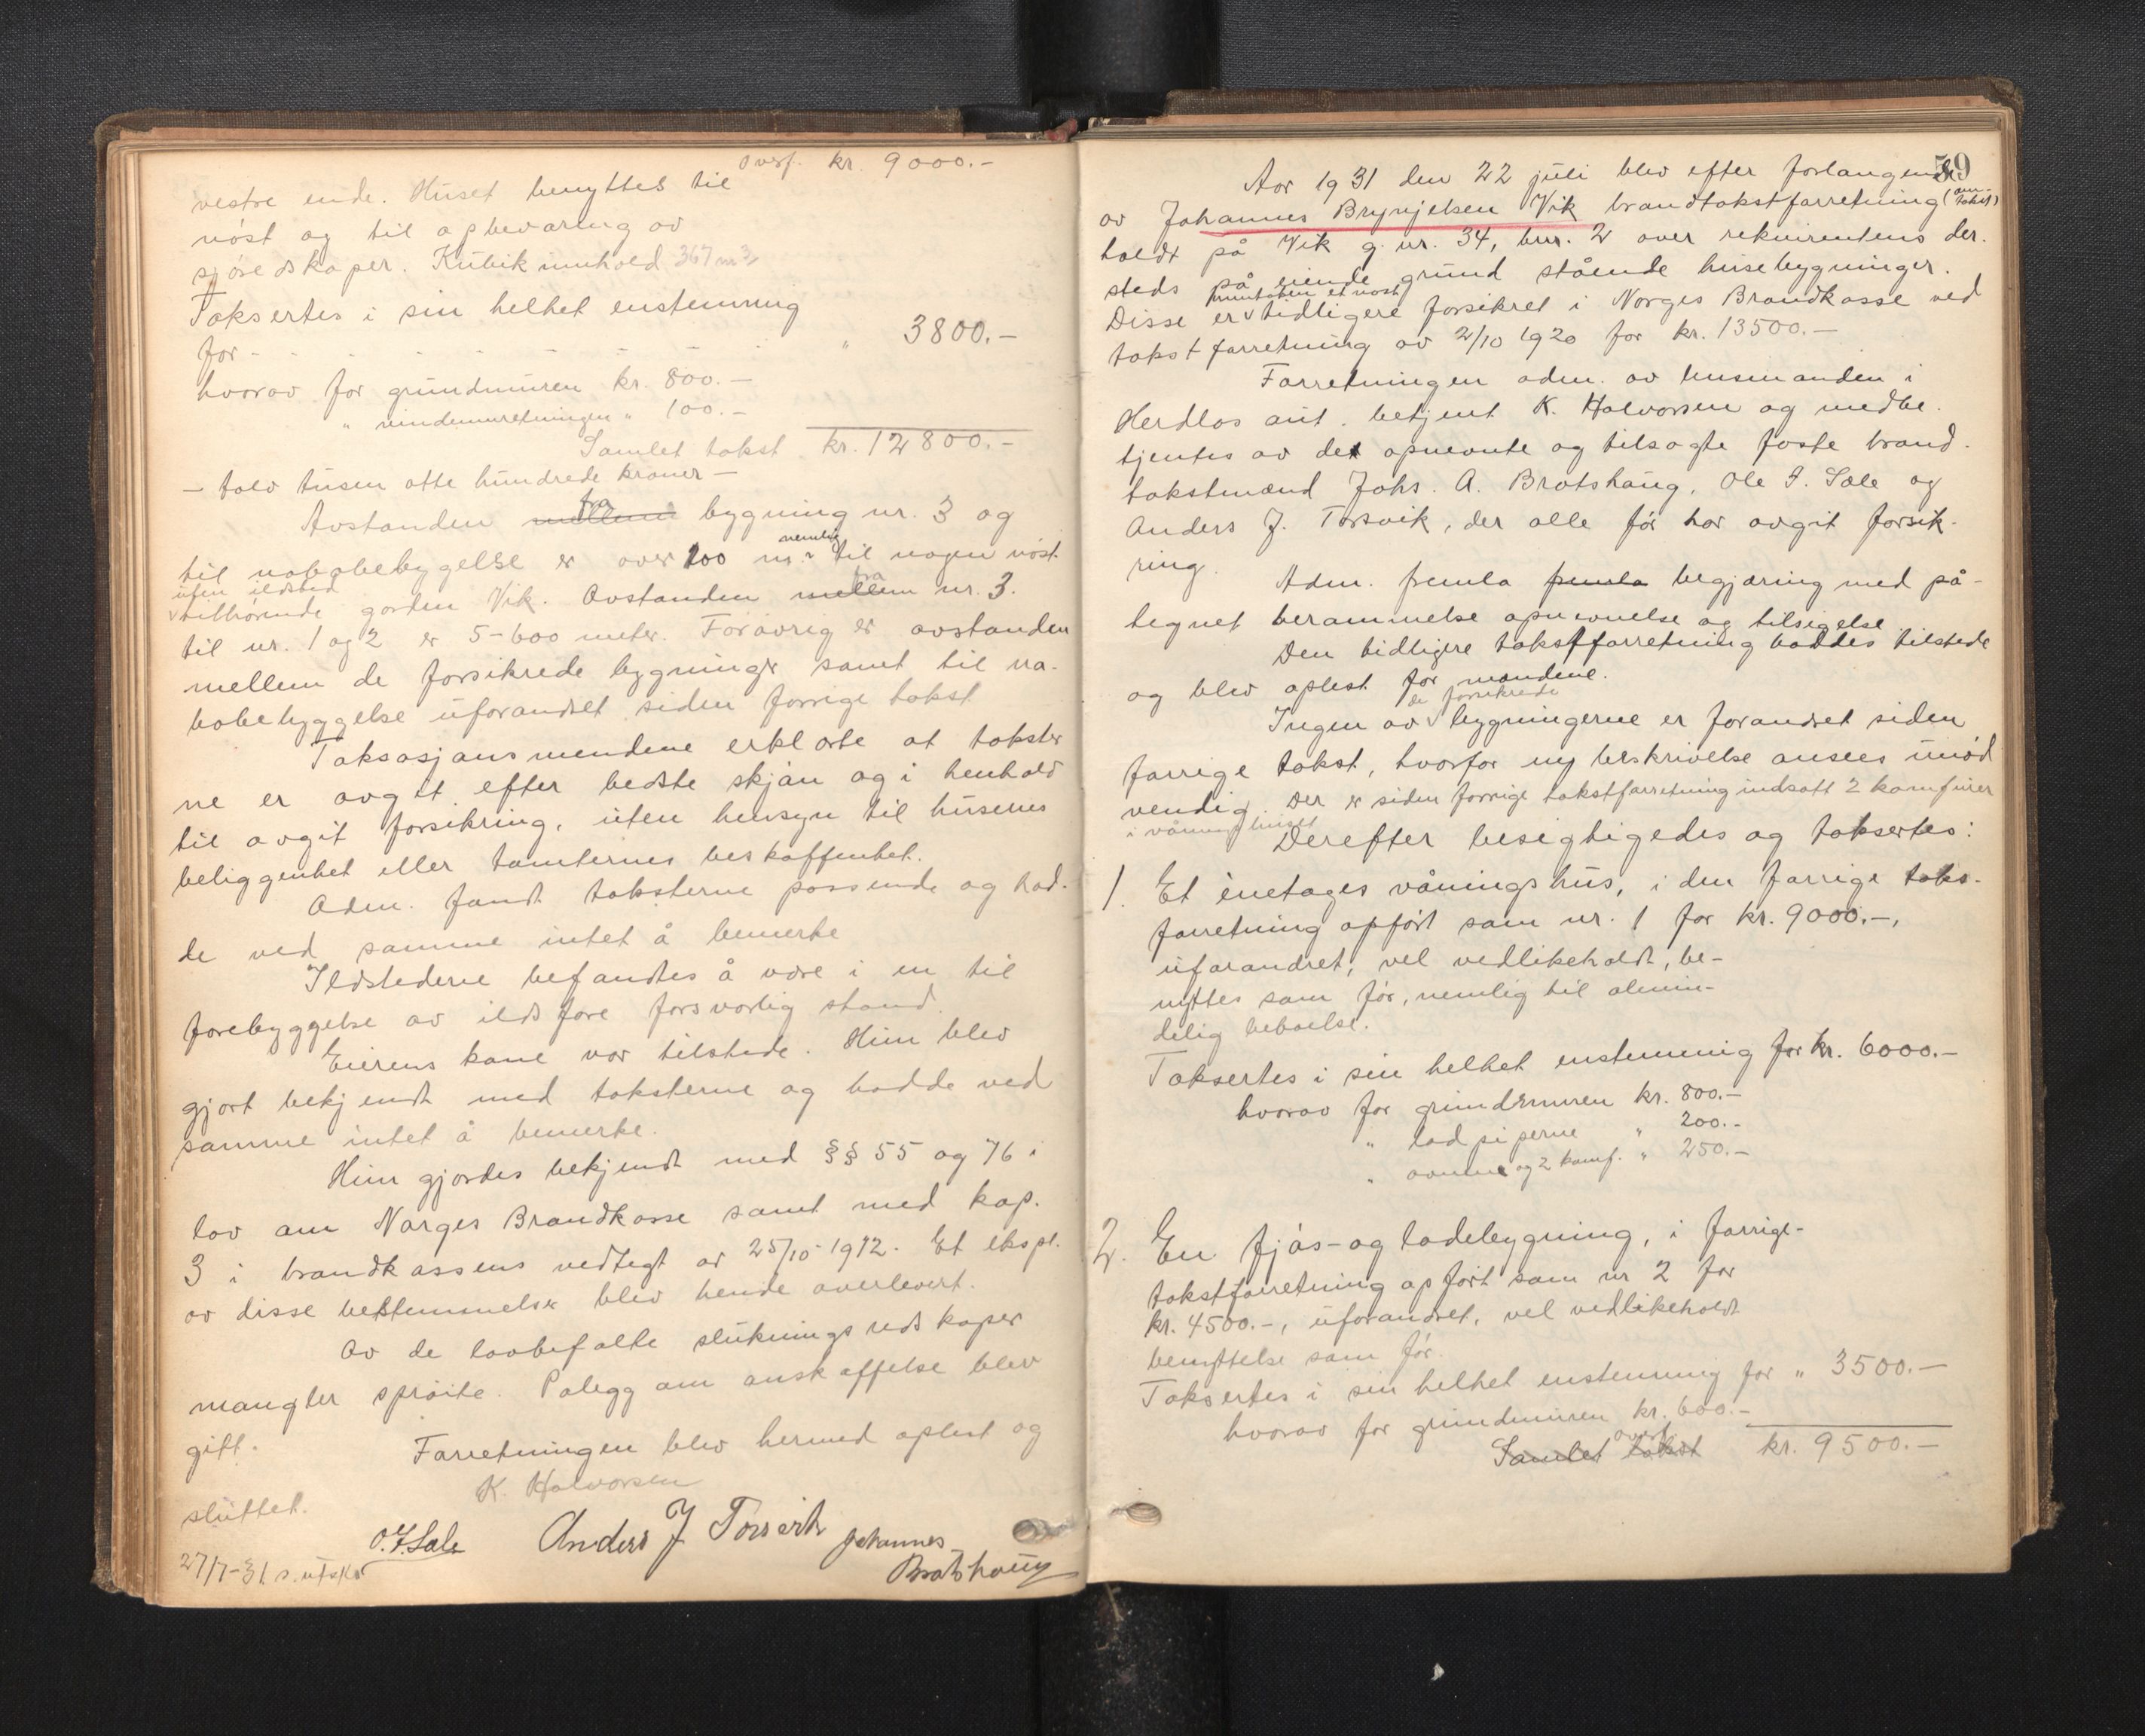 Overf. kr. 9000.-
vestre ende. Huset benyttes til
nöst og til opbevaring av
sjöredskaper. Kubikinnhold 367 m3
Taksertes i sin helhet enstemmig
for - - - - - - " 3800.-
hvorav for grundmuren kr. 800.-
" vindeinnretningen " 100.-
Samlet takst kr. 12800.-
- tolv tusen otte hundrede kroner -
fra
Avstanden mellem bygning nr. 3 og
nemlig
til nabobebyggelse er over 100 m. til nogen nöst
uten ildsted fra
tilhörende gården Vik. Avstanden mellem nr. 3.
til nr. 1 og 2 er 5-600 meter. Forövrig er avstanden
mellem de forsikrede bygninger samt til na-
bobebyggelse uforandret siden forrige takst
Taksasjonsmendene erklærte at takster
ne er avgit efter bedste skjön og i henhold
til avgit forsikring, uten hensyn til husenes
beliggenhet eller tomternes beskaffenhet.
Adm. fandt taksterne passende og had-
de ved samme intet å bemerke
Ildstederne befandtes å være i en til
forebyggelse av ildsfare forsvarlig stand.
Eierens kone var tilstede. Hun blev
gjort bekjendt med taksterne og hadde ved
samme intet å bemerke.
Hun gjordes bekjendt med §§ 55 og 76 i
lov om Norges Brandkasse samt med kap.
3 i brandkassens vedtegt av 25/10-1912. Et ekspl.
av disse bestemmelser blev hende overlevert.
Av de lovbefalte slukningsredskaper
mangler spröite. Pålegg om anskaffelse blev
gitt.
Forretningen blev hermed oplest og
sluttet.
K. Halvorsen
O. J. Sæle Anders J Torsvik Johannes
Brotshaug
27/7-31. s. utskr
59
Aar 1931 den 22 juli blev efter forlangende
av Johannes Brynjelsen Vik brandtakstforretning (om-
takst)
holdt på Vik g. nr. 34, bnr. 2 over rekvirentens der-
steds på eiende grund stående husebygninger.
undtaten et nöst
Disse er tidligere forsikret i Norges Brandkasse ved
takstforretning av 2/10 1920 for kr. 13500.-
Forretningen adm. av lensmanden i
Herdla ved aut. betjent K. Halvorsen og medbe-
tjentes av de opnevnte og tilsagte faste brand-
takstmænd Johs. A. Brotshaug, Ole J. Sæle og
Anders J. Torsvik, der alle för har avgit forsik-
ring.
Adm. fremla fremla begjæring med på-
tegnet berammelse opnevnelse og tilsigelse.
Den tidligere takstforretning hadtes tilstede
og blev oplest for mændene.
de forsikrede
Ingen av bygningerne er forandret siden
forrige takst, hvorfor ny beskrivelse ansees unöd
vendig. Der er siden forrige takstforretning indsatt 2 komfurer
i våningshuset
Derefter besigtigedes og taksertes:
1. Et enetages våningshus, i den forrige takst-
forretning opfört som nr. 1 for kr. 9000.-,
uforandret, vel vedlikeholdt, be-
nyttes som för, nemlig til almin-
delig beboelse.
Taksertes i sin helhet enstemmig for kr. 6000.-
hvorav for grundmuren kr. 800.-
" lod piperne " 200.-
" ovnene og 2 komf. " 250.-
2. En fjös- og ladebygning, i forrige-
takstforretning opfört som nr 2 for
kr. 4500.-, uforandret, vel vedlikeholdt
benyttelse som för.
Taksertes i sin helhet enstemmig for " 3500.-
hvorav for grundmuren kr. 600.-
overf.
Samlet takst kr. 9500.-